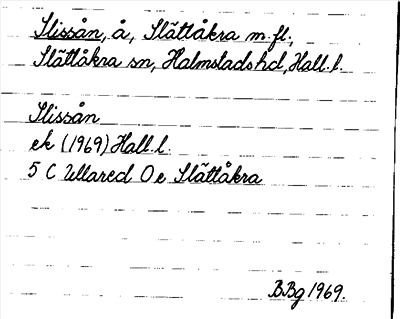 Slissån, å, Slättåkra m. fl.,
Slättåkra sn, Halmstads hd, Hall. l.
Slissån
ek (1969) Hall. l.
5 C Ullared O e Slättåkra
B Bg 1969.